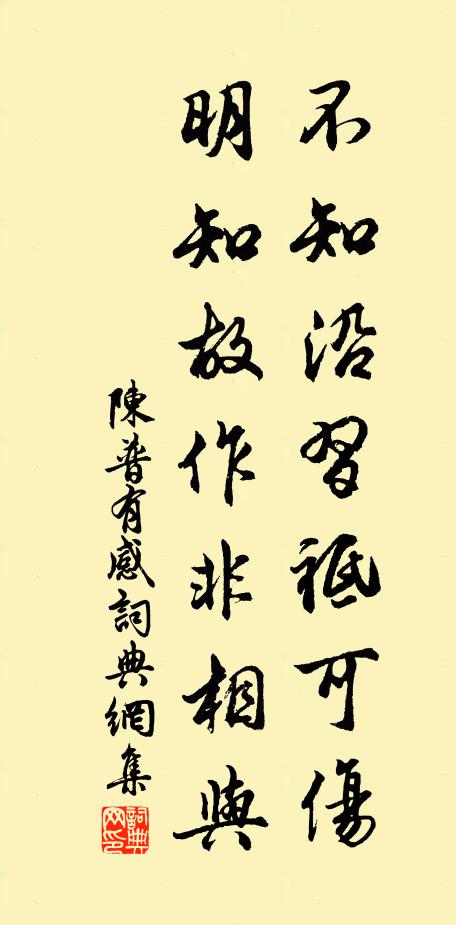 不知沿習祗可傷
明知故作非相與
陳普有感詞典網集
詞典网印